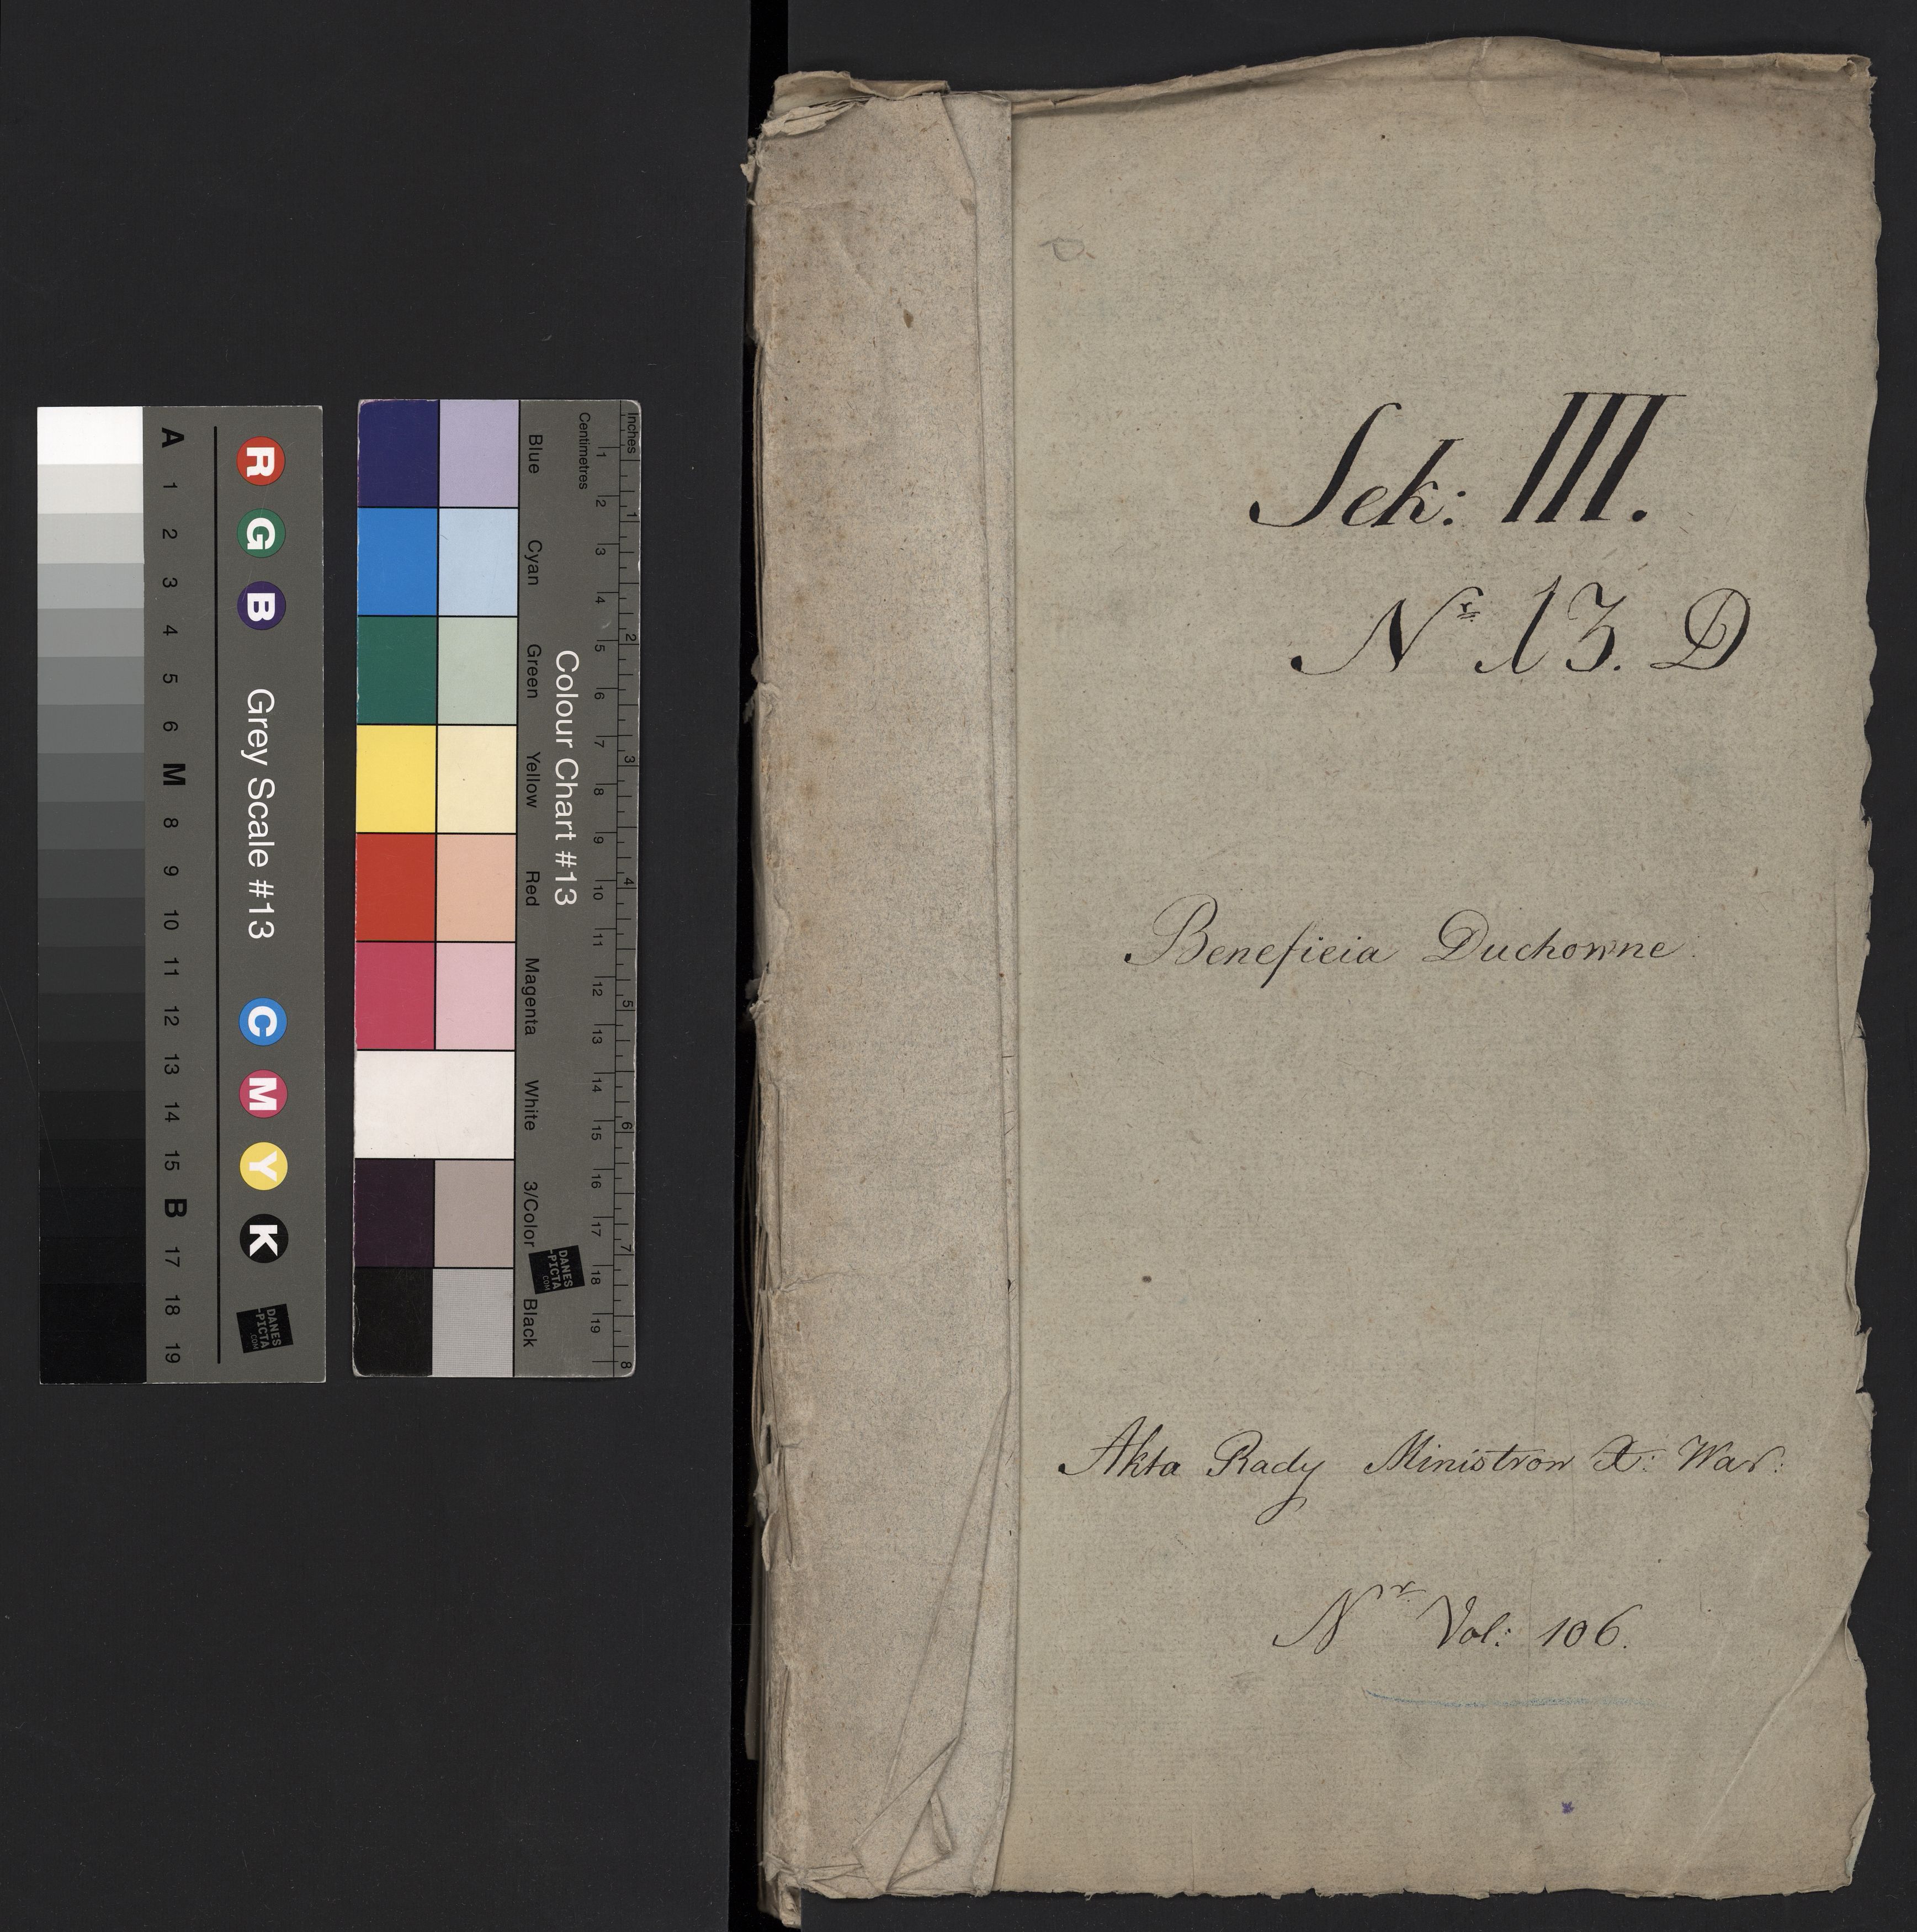 Sek: III.
Nr 13. D
Beneficia Duchowne
Akta Rady Ministrow X: War:
Nr Vol: 106.
A 1 2 3 4 5 6 M 8 9 10 11 12 13 14 15 B 17 18 19
R G B Grey Scale #13 C M Y K
DANES
-PICTA
.COM
Blue Cyan Green Yellow Red Magenta White 3/Color Black
Colour Chart #13
DANES
-PICTA
.COM
Centimetres 1 2 3 4 5 6 7 8 9 10 11 12 13 14 15 16 17 18 19
Inches 1 2 3 4 5 6 7 8